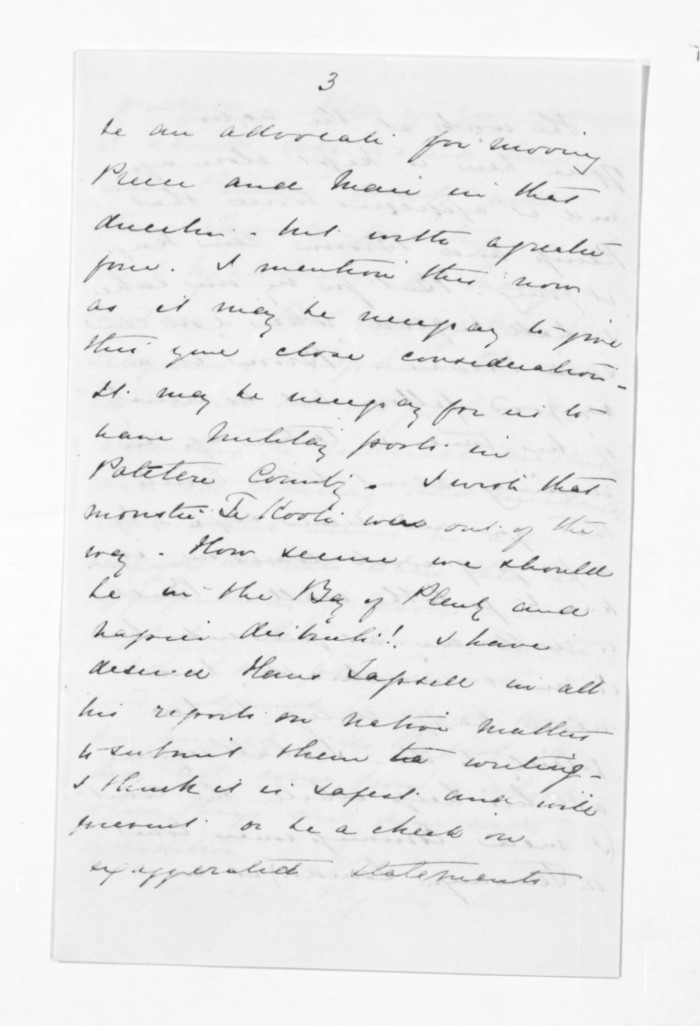 3
be an advocate for moving
Preece and Mair in that
direction - but with a greater
force. I mention this now
as it may be necessary to give
this your close consideration -
It may be necessary for us to
have Military posts in
Patetere County. I wish that
monster Te Kooti was out of the
way - How secure we should
be in the Bay of Plenty and
Napier districts! I have
desired Hans Tapsell in all
his reports on native matters
to submit them to writing -
I think it is safest and will
prevent or be a check on
exaggerated statements